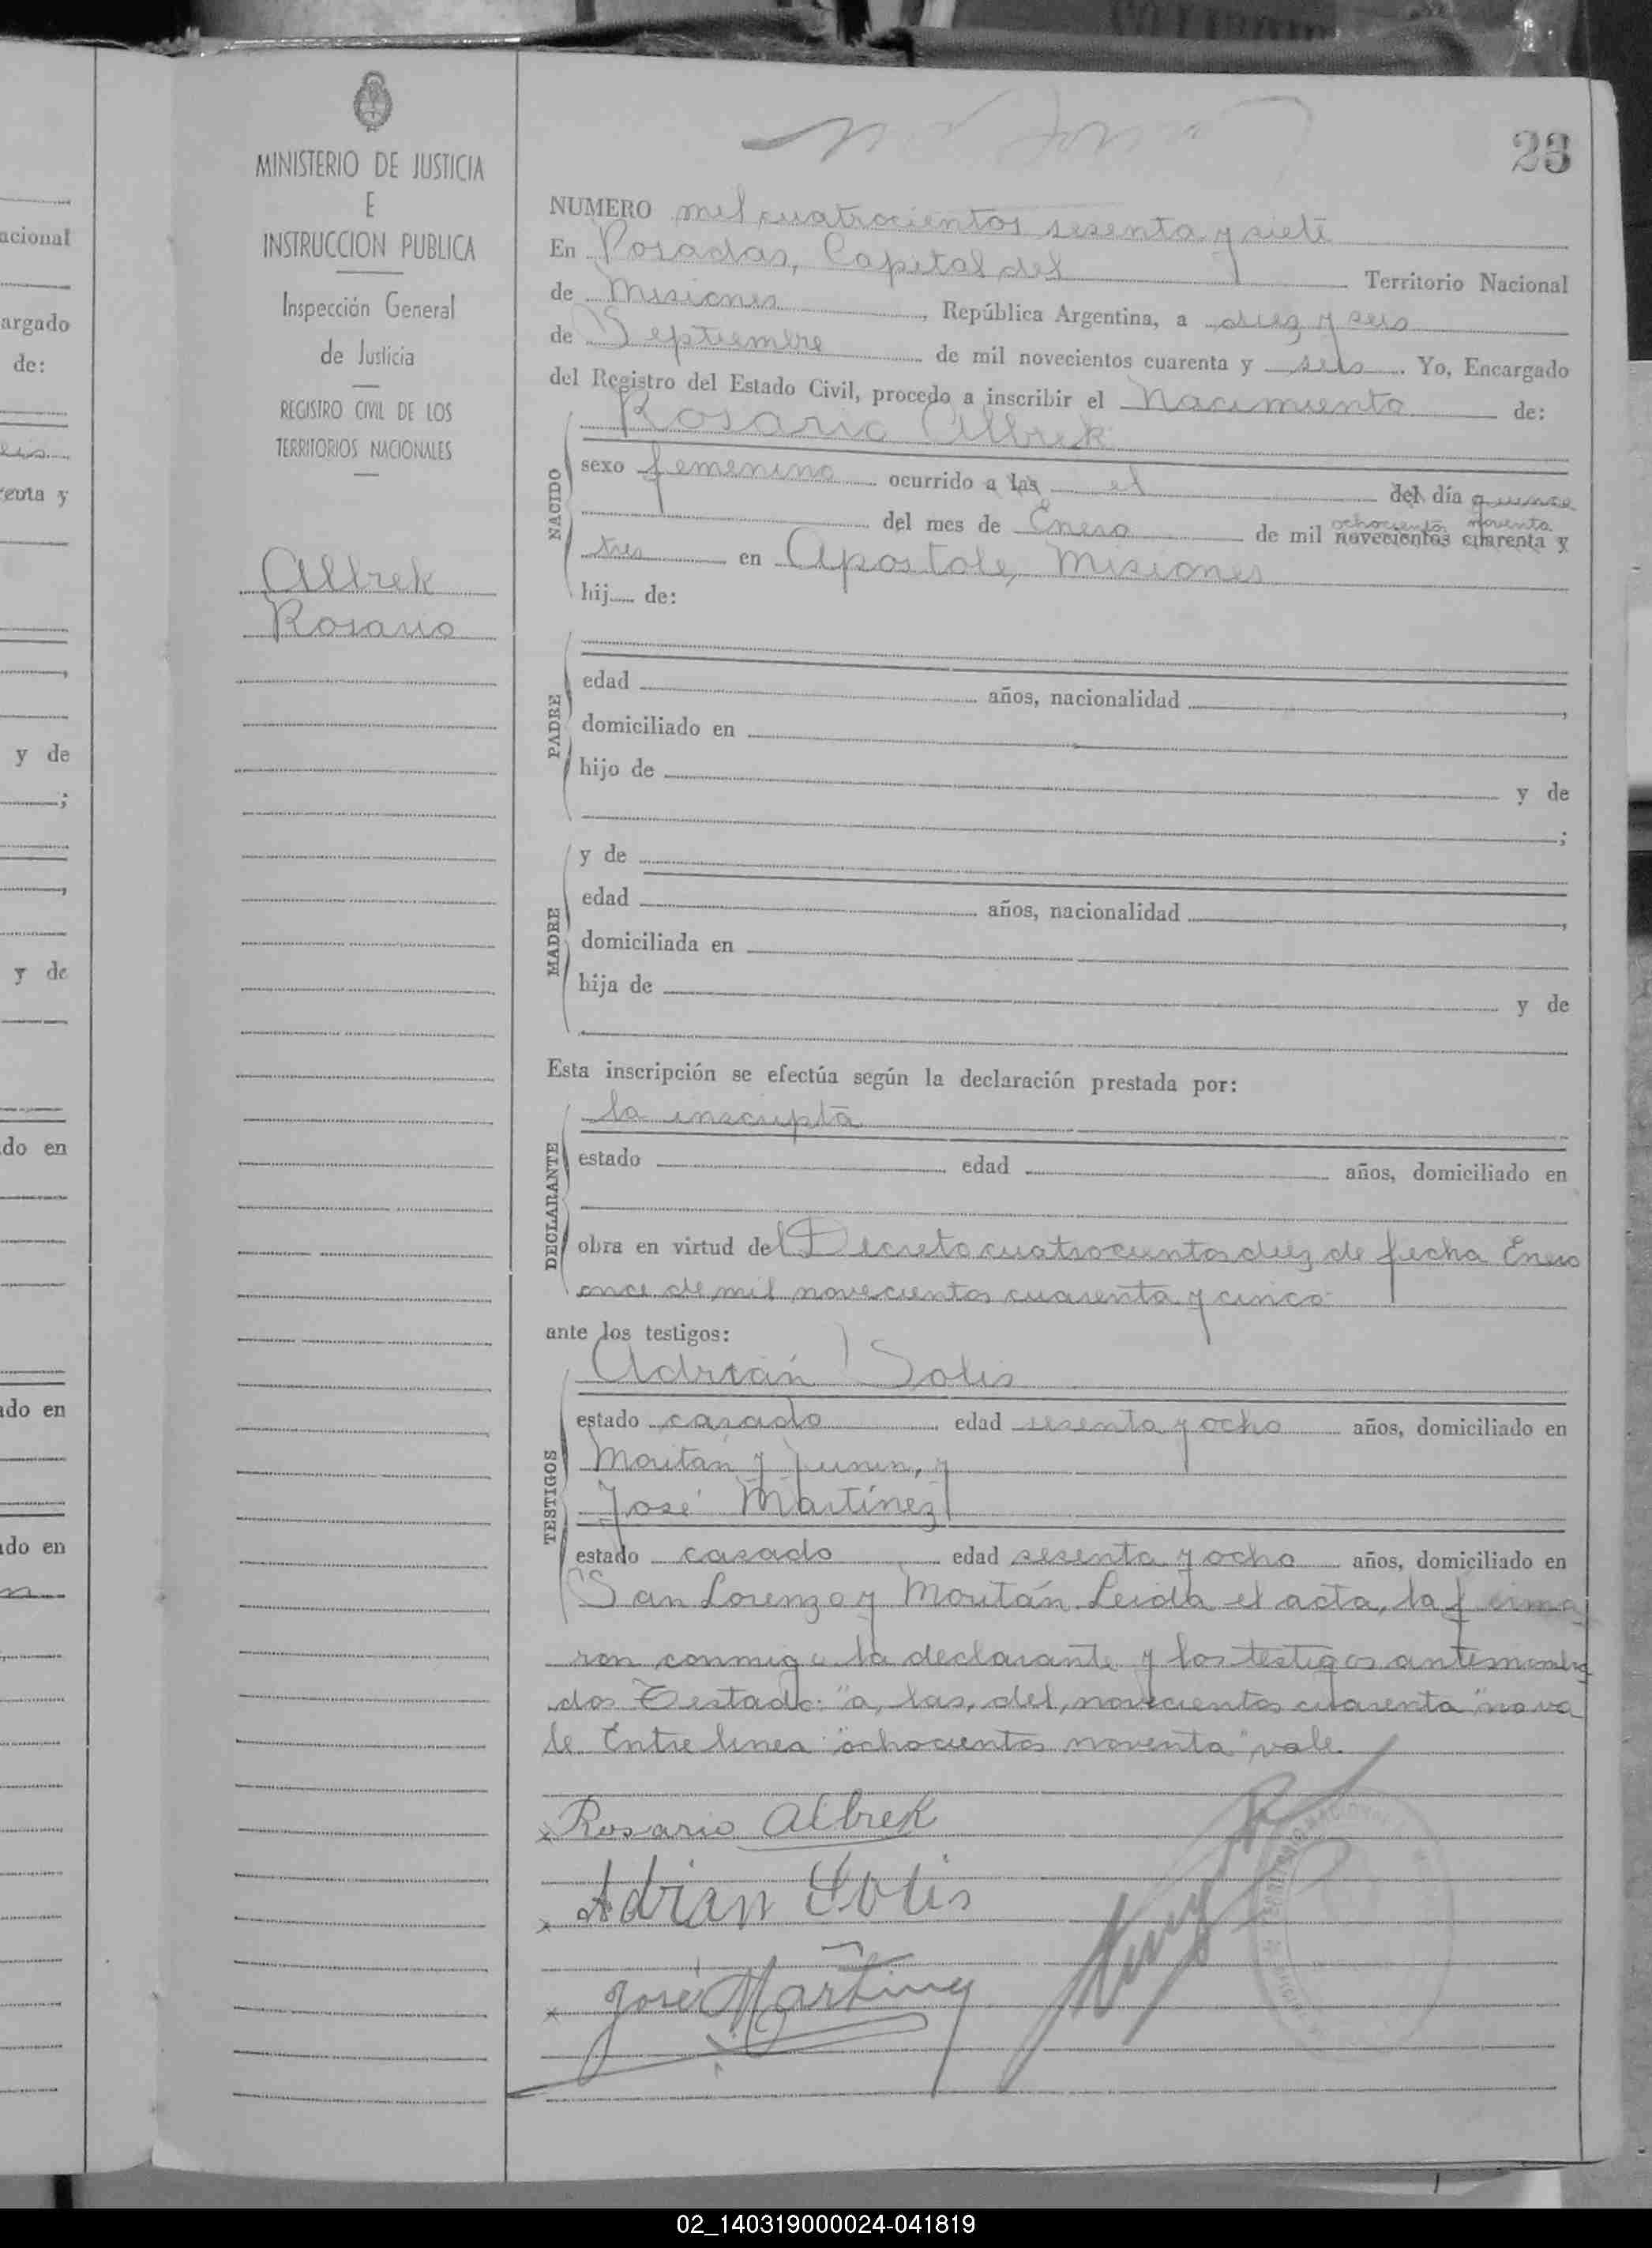 23
MINISTERIO DE JUSTICIA
E
INSTRUCCION PUBLICA
Inspección General
de Justicia
REGISTRO CIVIL DE LOS
TERRITORIOS NACIONALES
Albrek
Rosario
NUMERO mil cuatrocientos sesenta y siete
En Posadas, Capital del Territorio Nacional
de Misiones, República Argentina, a diez y seis
de Septiembre de mil novecientos cuarenta y seis. Yo, Encargado
del Registro del Estado Civil, procedo a inscribir el Nacimiento de:
Rosario Albrek
NACIDO
sexo femenino ocurrido a las el del día quince
ochocientos noventa
del mes de Enero de mil novecientos cuarenta y
tres en Apóstole, Misiones
hij de:
PADRE
edad años, nacionalidad ,
domiciliado en
hijo de y de
;
MADRE
y de
edad años, nacionalidad ,
domiciliada en
hija de y de
Esta inscripción se efectúa según la declaración prestada por:
DECLARANTE
la inscripta
estado edad años, domiciliado en
obra en virtud del Decreto cuatrocientos diez de fecha Enero
once de mil novecientos cuarenta y cinco
ante los testigos:
TESTIGOS
Adrián Solis
estado casado edad sesenta y ocho años, domiciliado en
Moritán y Junin, y
José Martínez
estado casado edad sesenta y ocho años, domiciliado en
San Lorenzo y Moritán Leida el acta, la firma
ron conmigo la declarante y los testigos antes nombra
dos Testado: "a, las, del, novecientos cuarenta" no va
le Entre linea "ochocientos noventa" vale.
x Rosario Albrek
x Adrian Solis
x José Martinez
acional
argado
de:
enta y
y de
;
,
y de
do en
ado en
ado en
02_140319000024-041819